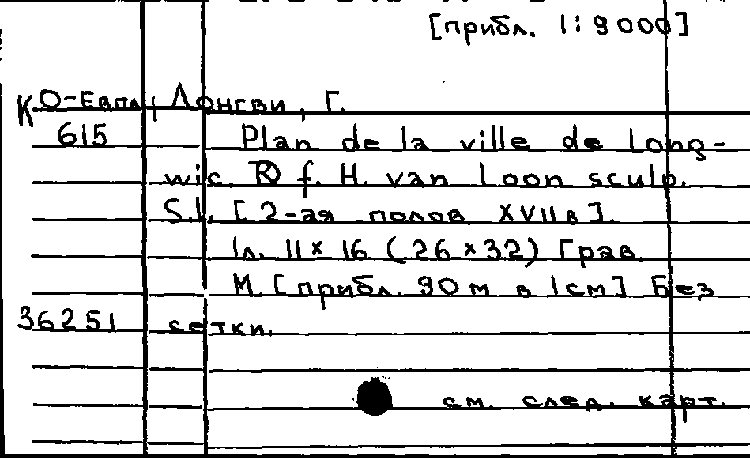 [прибл. 1:9000]
К О-Евпл Лонгви, Г.
615 Plan de la ville de Long-
wic. R f. H. van Loon sculp.
S.l. [2-ая полов XVII в].
1л. 11×16 (26×32) Грав.
М. [прибл. 90 м в 1см] Без
36251 сетки.
см. след. карт.